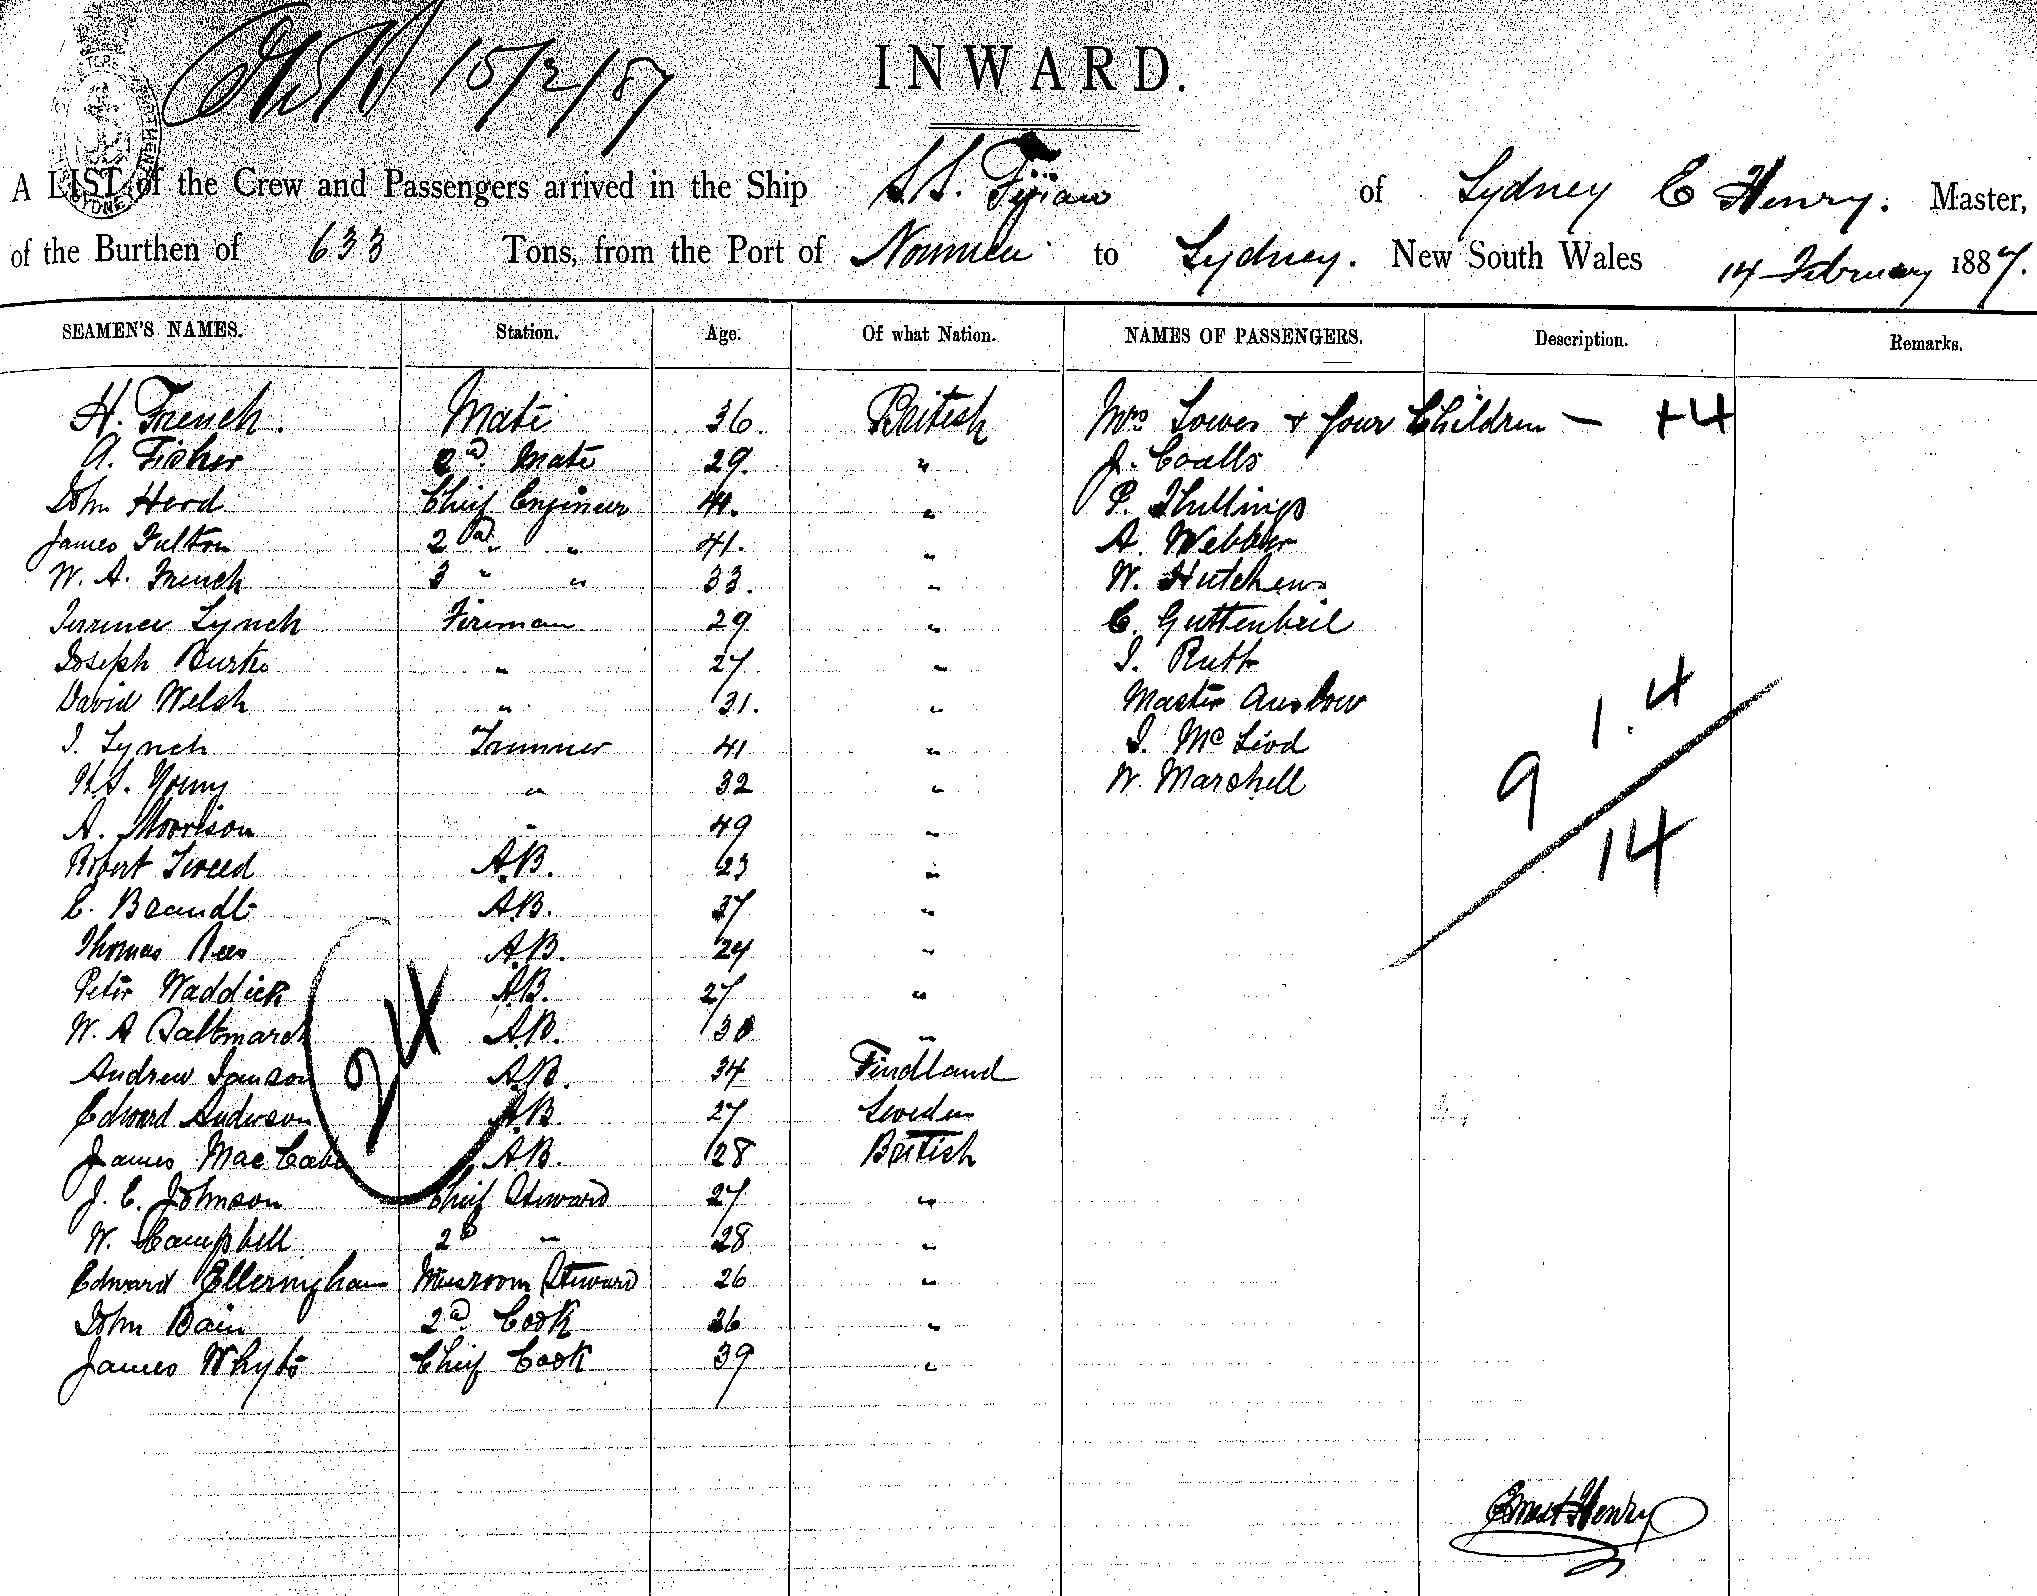 15/2/87
INWARD.
A LIST of the Crew and Passengers arrived in the Ship S.S. Fijian of Sydney E Henry. Master,
of the Burthen of 633 Tons, from the Port of Noumea to Sydney. New South Wales 14 February 1887.
SEAMEN'S NAMES. Station. Age. Of what Nation. NAMES OF PASSENGERS. Description. Remarks.
H. French. Mate 36. British Mrs Lower + four Children — +4
A. Fisher 2d. Mate 29. " J. Coalls
John Herd Chief Engineer 41. " P. Thullings
James Fulton 2d. " 41. " A. Webber
W. A. French 3 " " 33. " W. Hutchens
Terrence Lynch Fireman 29 " C. Guttenbeil
Joseph Burke " 27 "
David Welsh " 31. " Master
J. Lynch Trimmer 41 " J. McLeod
Young " 32 " W. Marshell
A. Morrison " 49 "
Robert Tweed A.B. 23 "
C. Brandt A.B. 37 "
Thomas Rees A.B. 24 "
Peter Waddick A.B. 27 "
W. A Saltmarsh A.B. 30 "
Andrew Jamson A.B. 34 Findland
Edward Anderson A.B. 27 Sweden
James MacCabe A.B. 28 British
J. C. Johnson Chief Steward 27 "
W. Campbell 2d " 28 "
Edward Elleringham Messroom Steward 26 "
John Bain 2d Cook 26 "
James Whyte Chief Cook 39 "
24
1.4
9
14
Ernest Henry